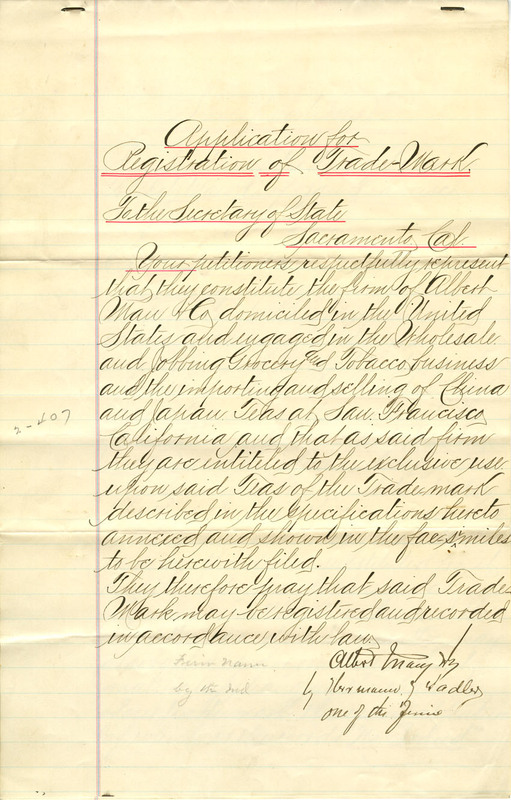 Application for
Registration of Trade-Mark.
To the Secretary of State
Sacramento, Cal.
Your petitioners respectfully represent
that they constitute the firm of Albert
Mau & Co, domiciled in the United
States and engaged in the Wholesale
and Jobbing Grocery and Tobacco business
and the importing and selling of China
and Japan Teas at San Francisco
2-407
California and that as said firm
they are intitled to the exclusive use
upon said Teas of the Trade mark
described in the specifications hereto
annexed and shown in the fac-similes
to be herewith filed.
They therefore pray that said Trade
Mark may be registered and recorded
in accordance with law.
Firm name
by the
Albert Mau & Co
by Hermann L
one of the Firm